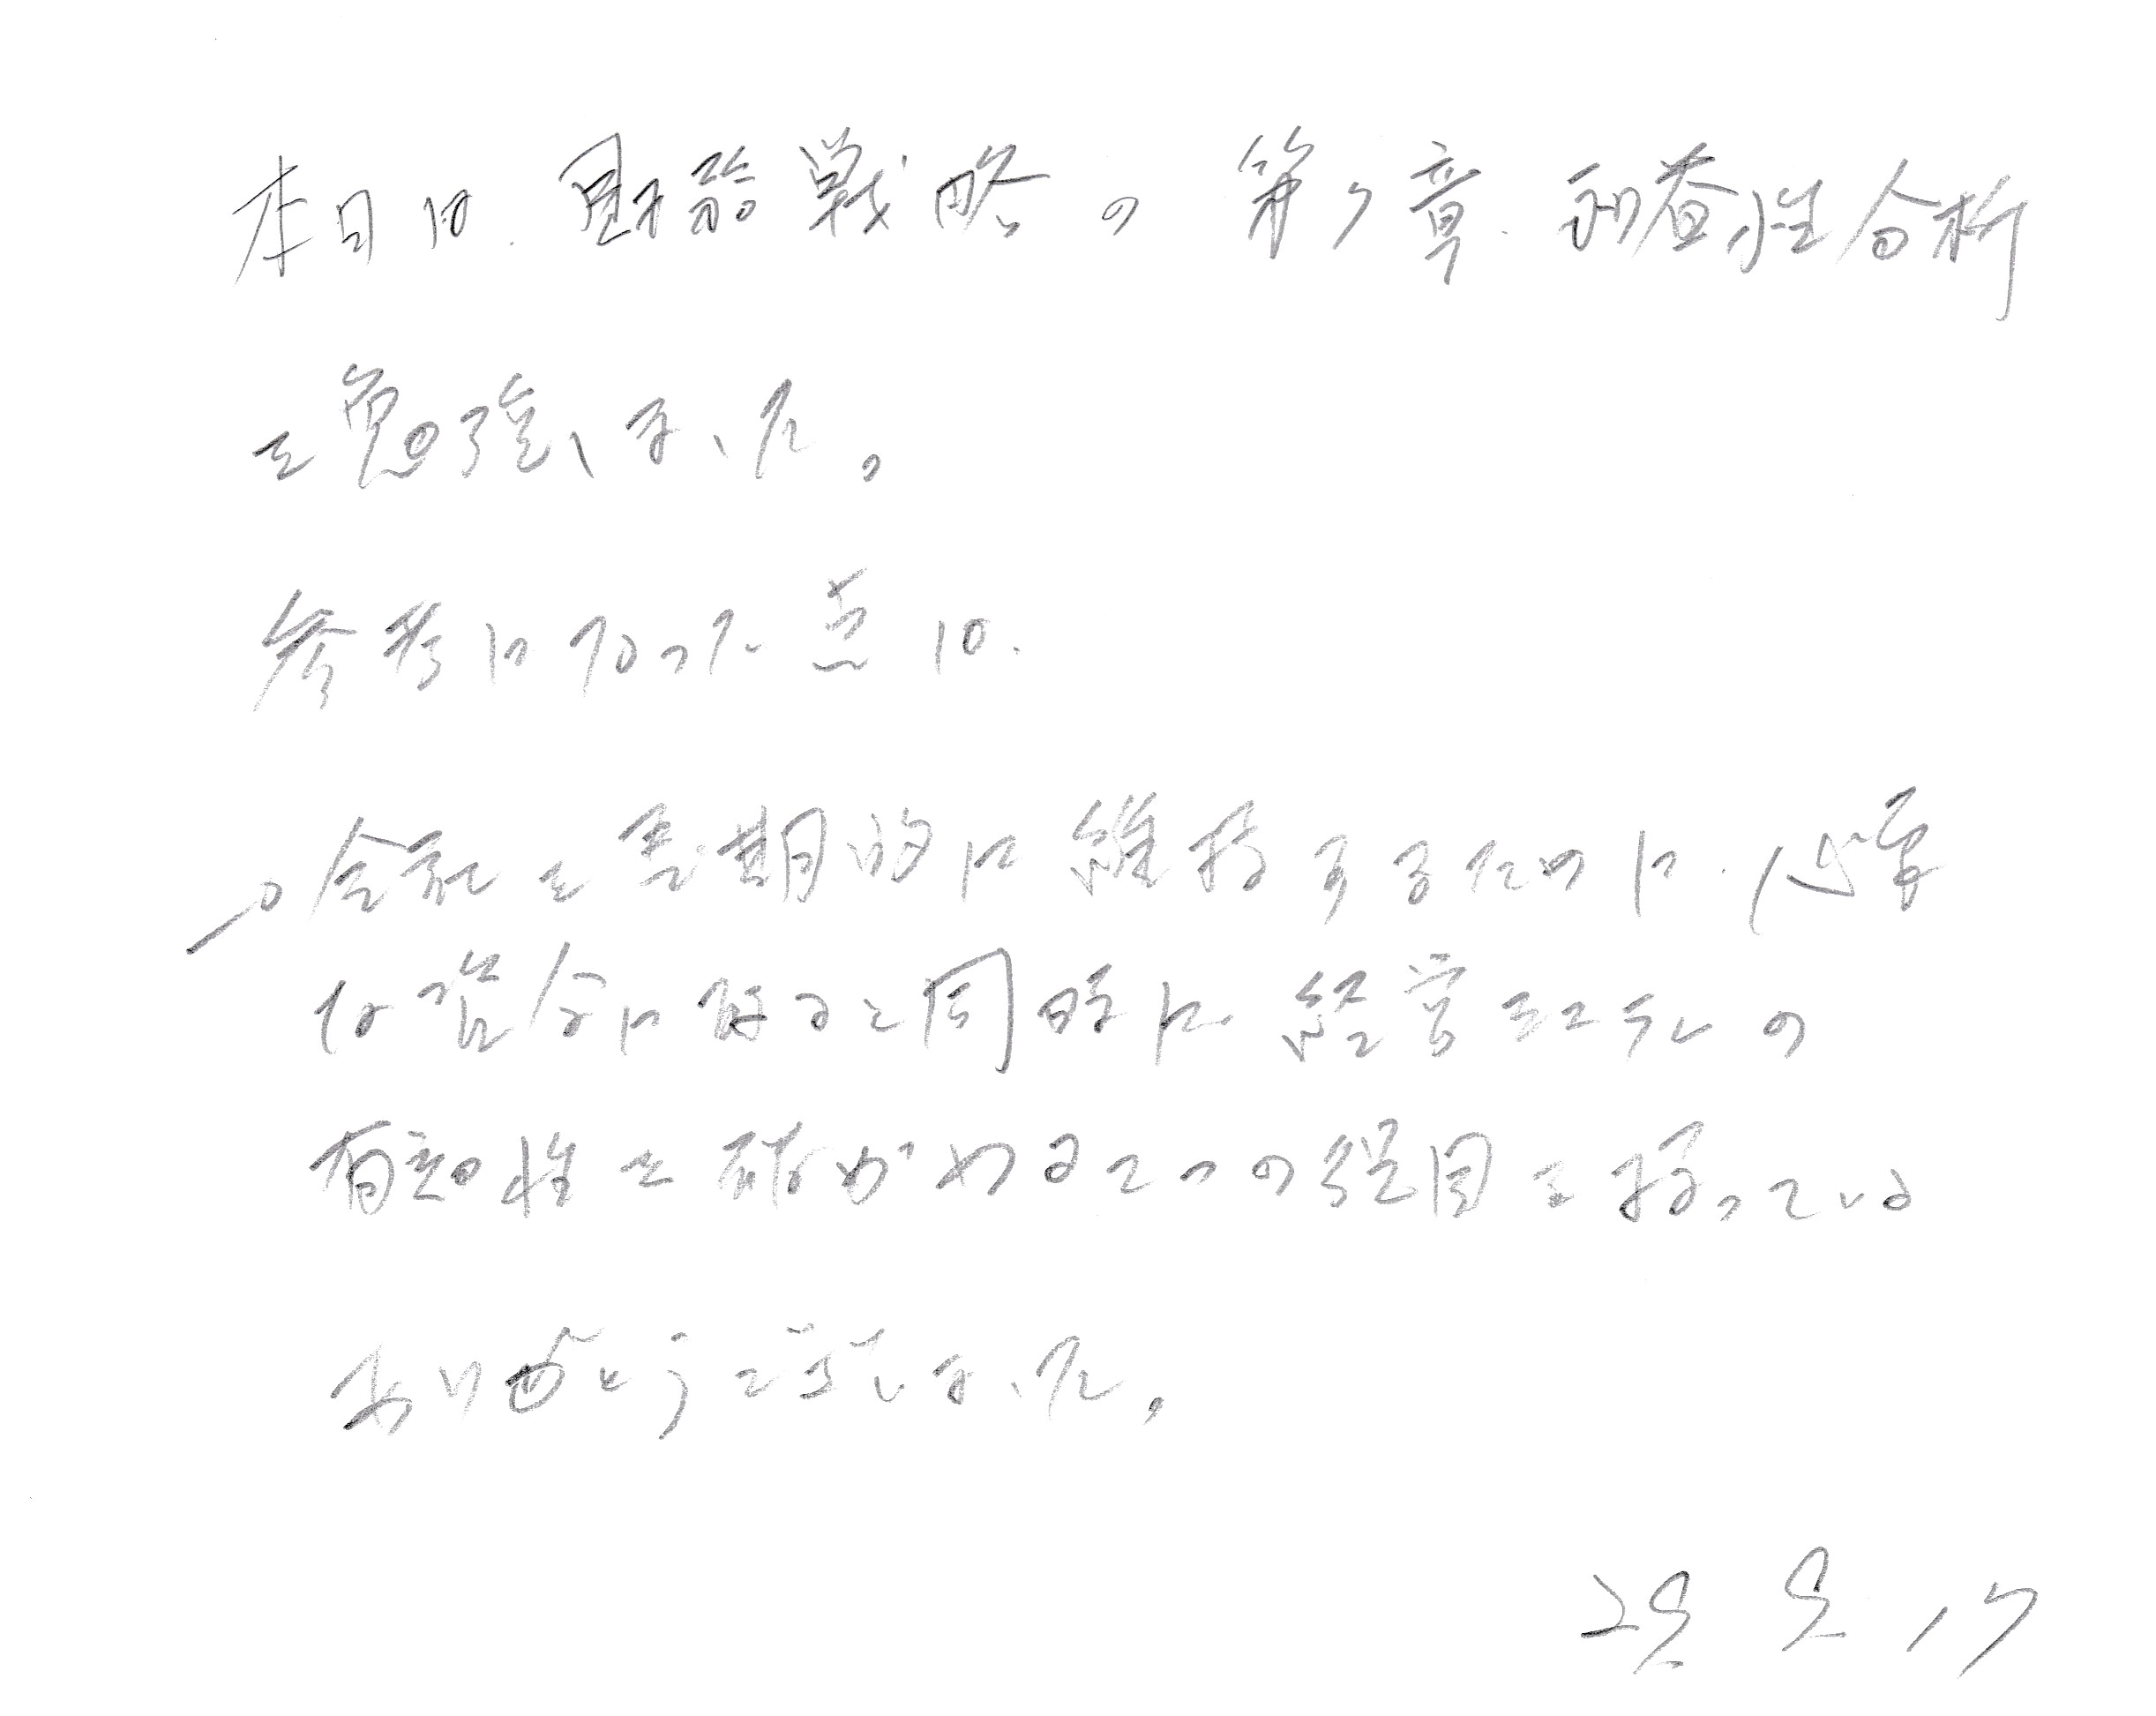 本日は、財務戦略の第7章、収益性分析
を勉強しました。
参考になった点は、
会社を長期的に維持するために、必要
な資金になると同時に、経営モデルの
有効性を確かめる2つの役目を持っている
ありがとうございました。